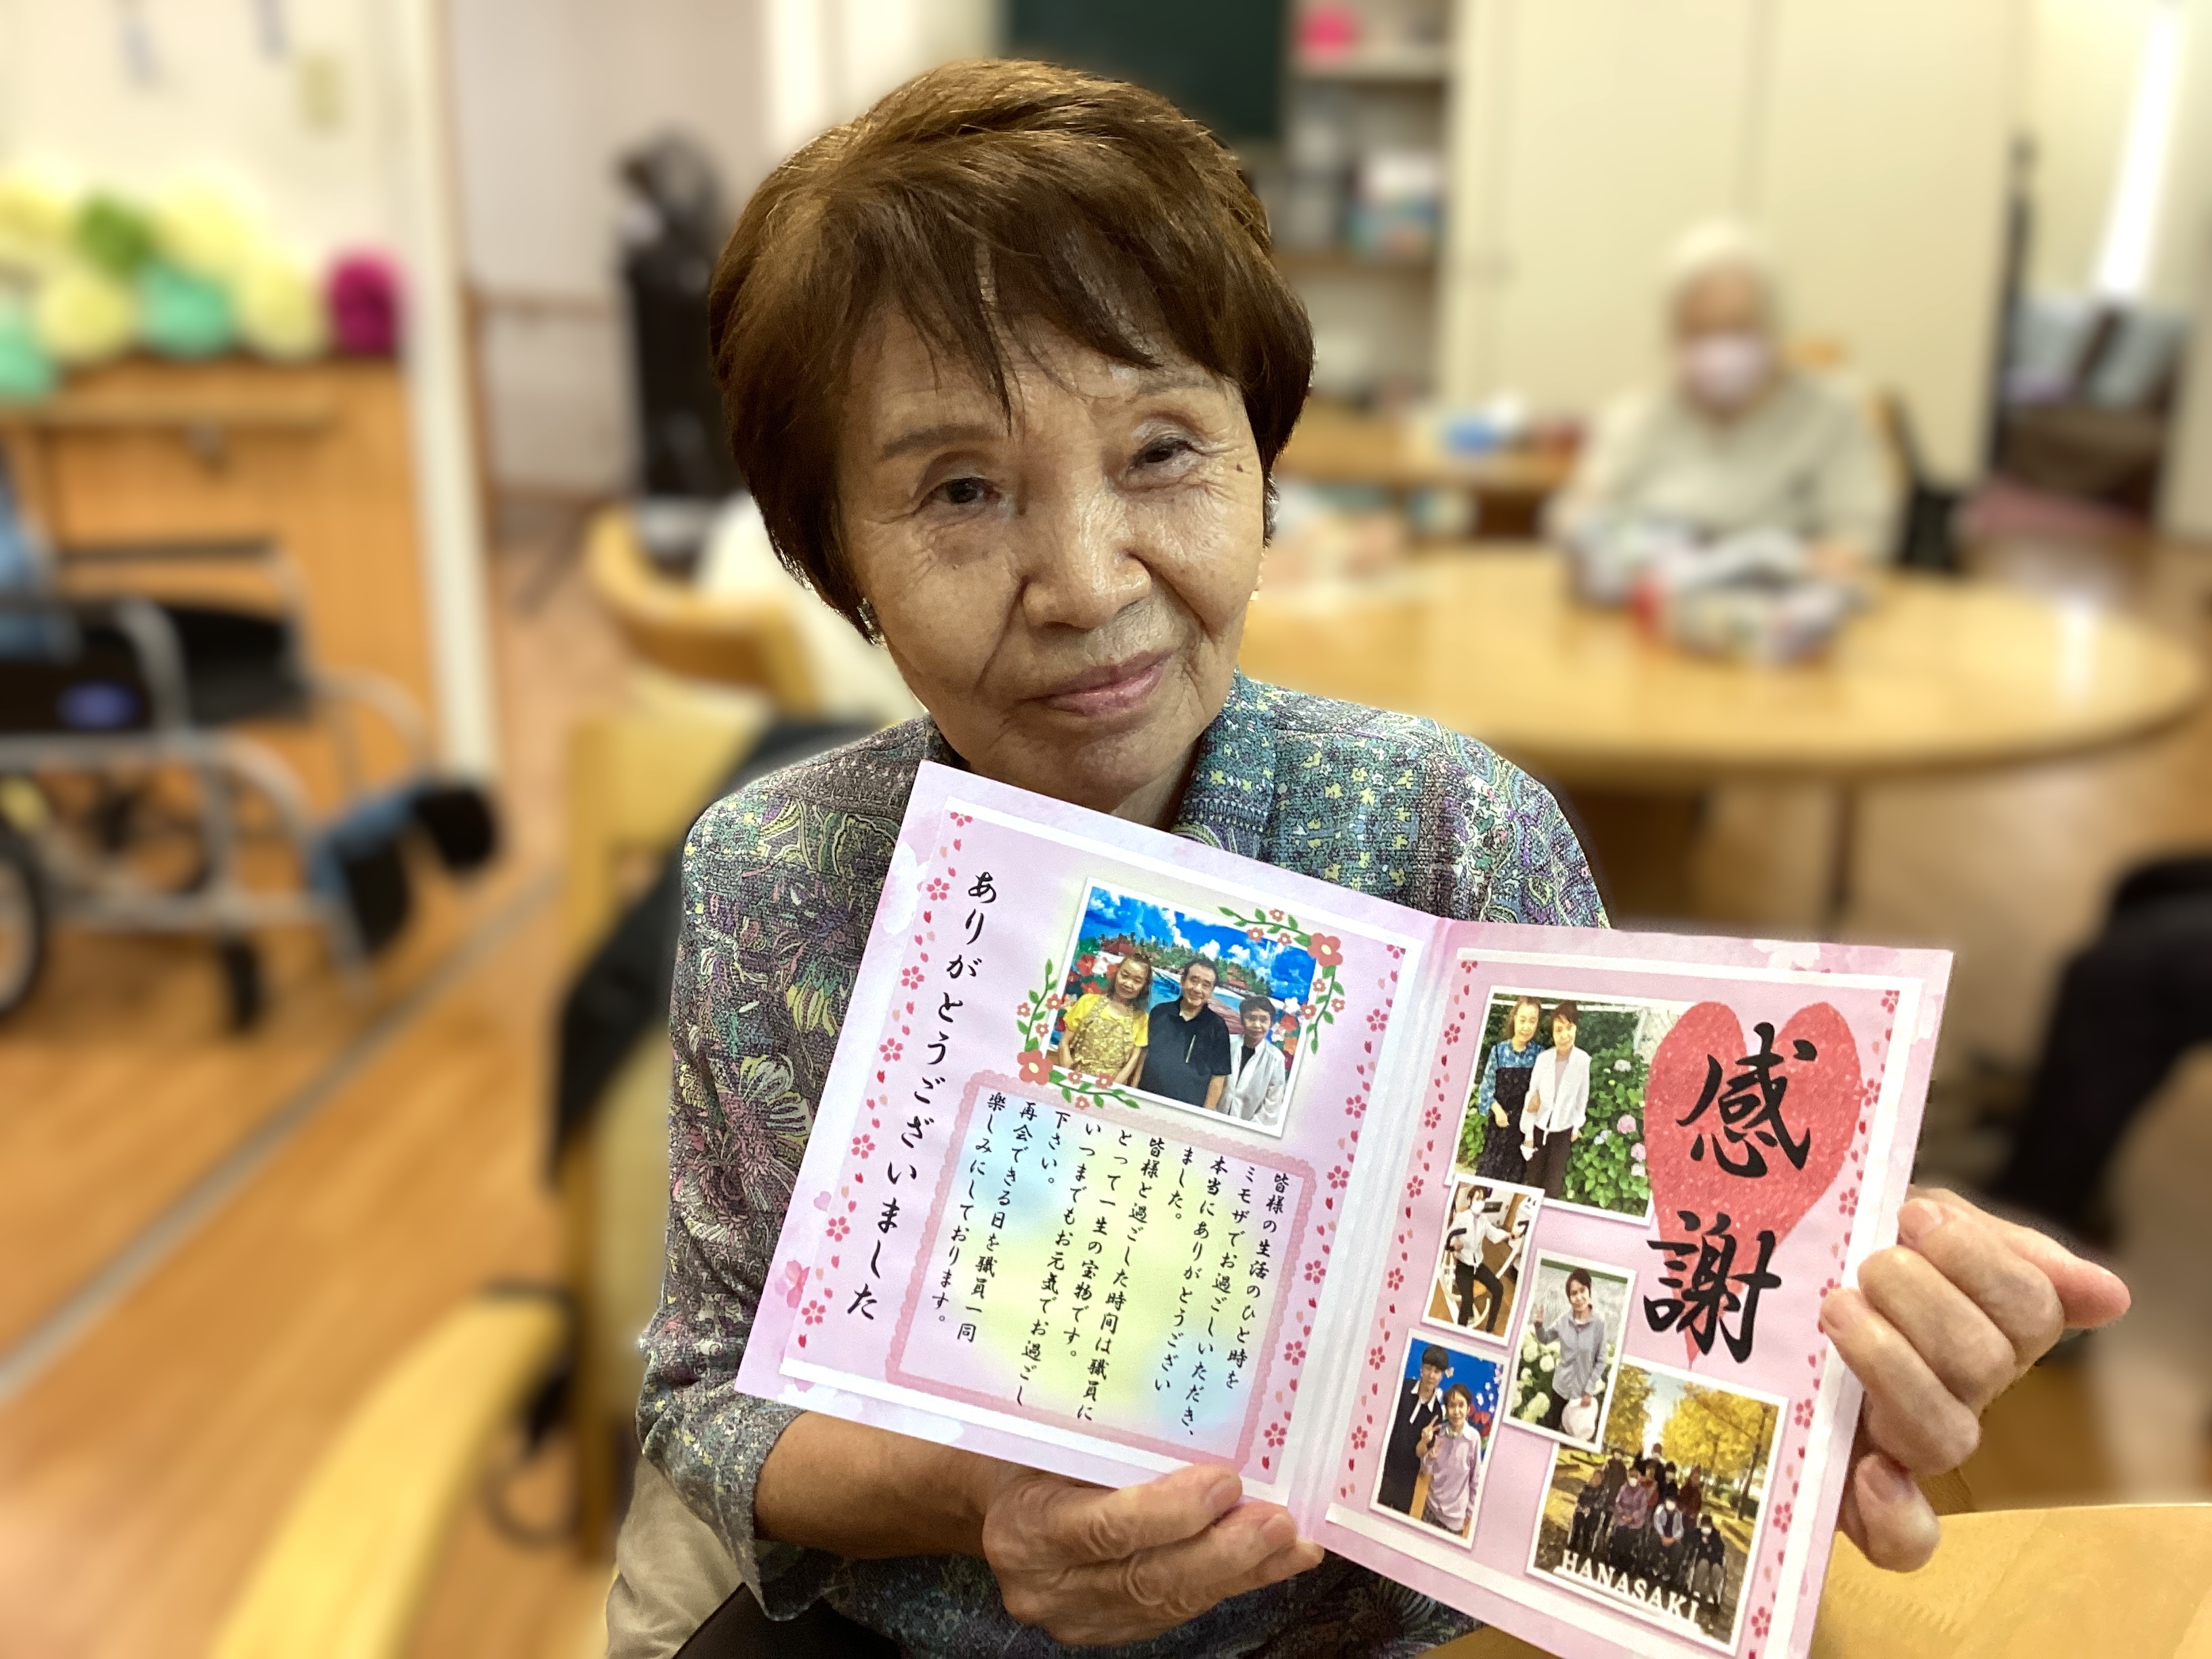 感謝
HANASAKI
皆様の生活のひと時を
ミモザでお過ごしいただき、
本当にありがとうござい
ました。
皆様と過ごした時間は職員に
とって一生の宝物です。
いつまでもお元気でお過ごし
下さい。
再会できる日を職員一同
楽しみにしております。
ありがとうございました